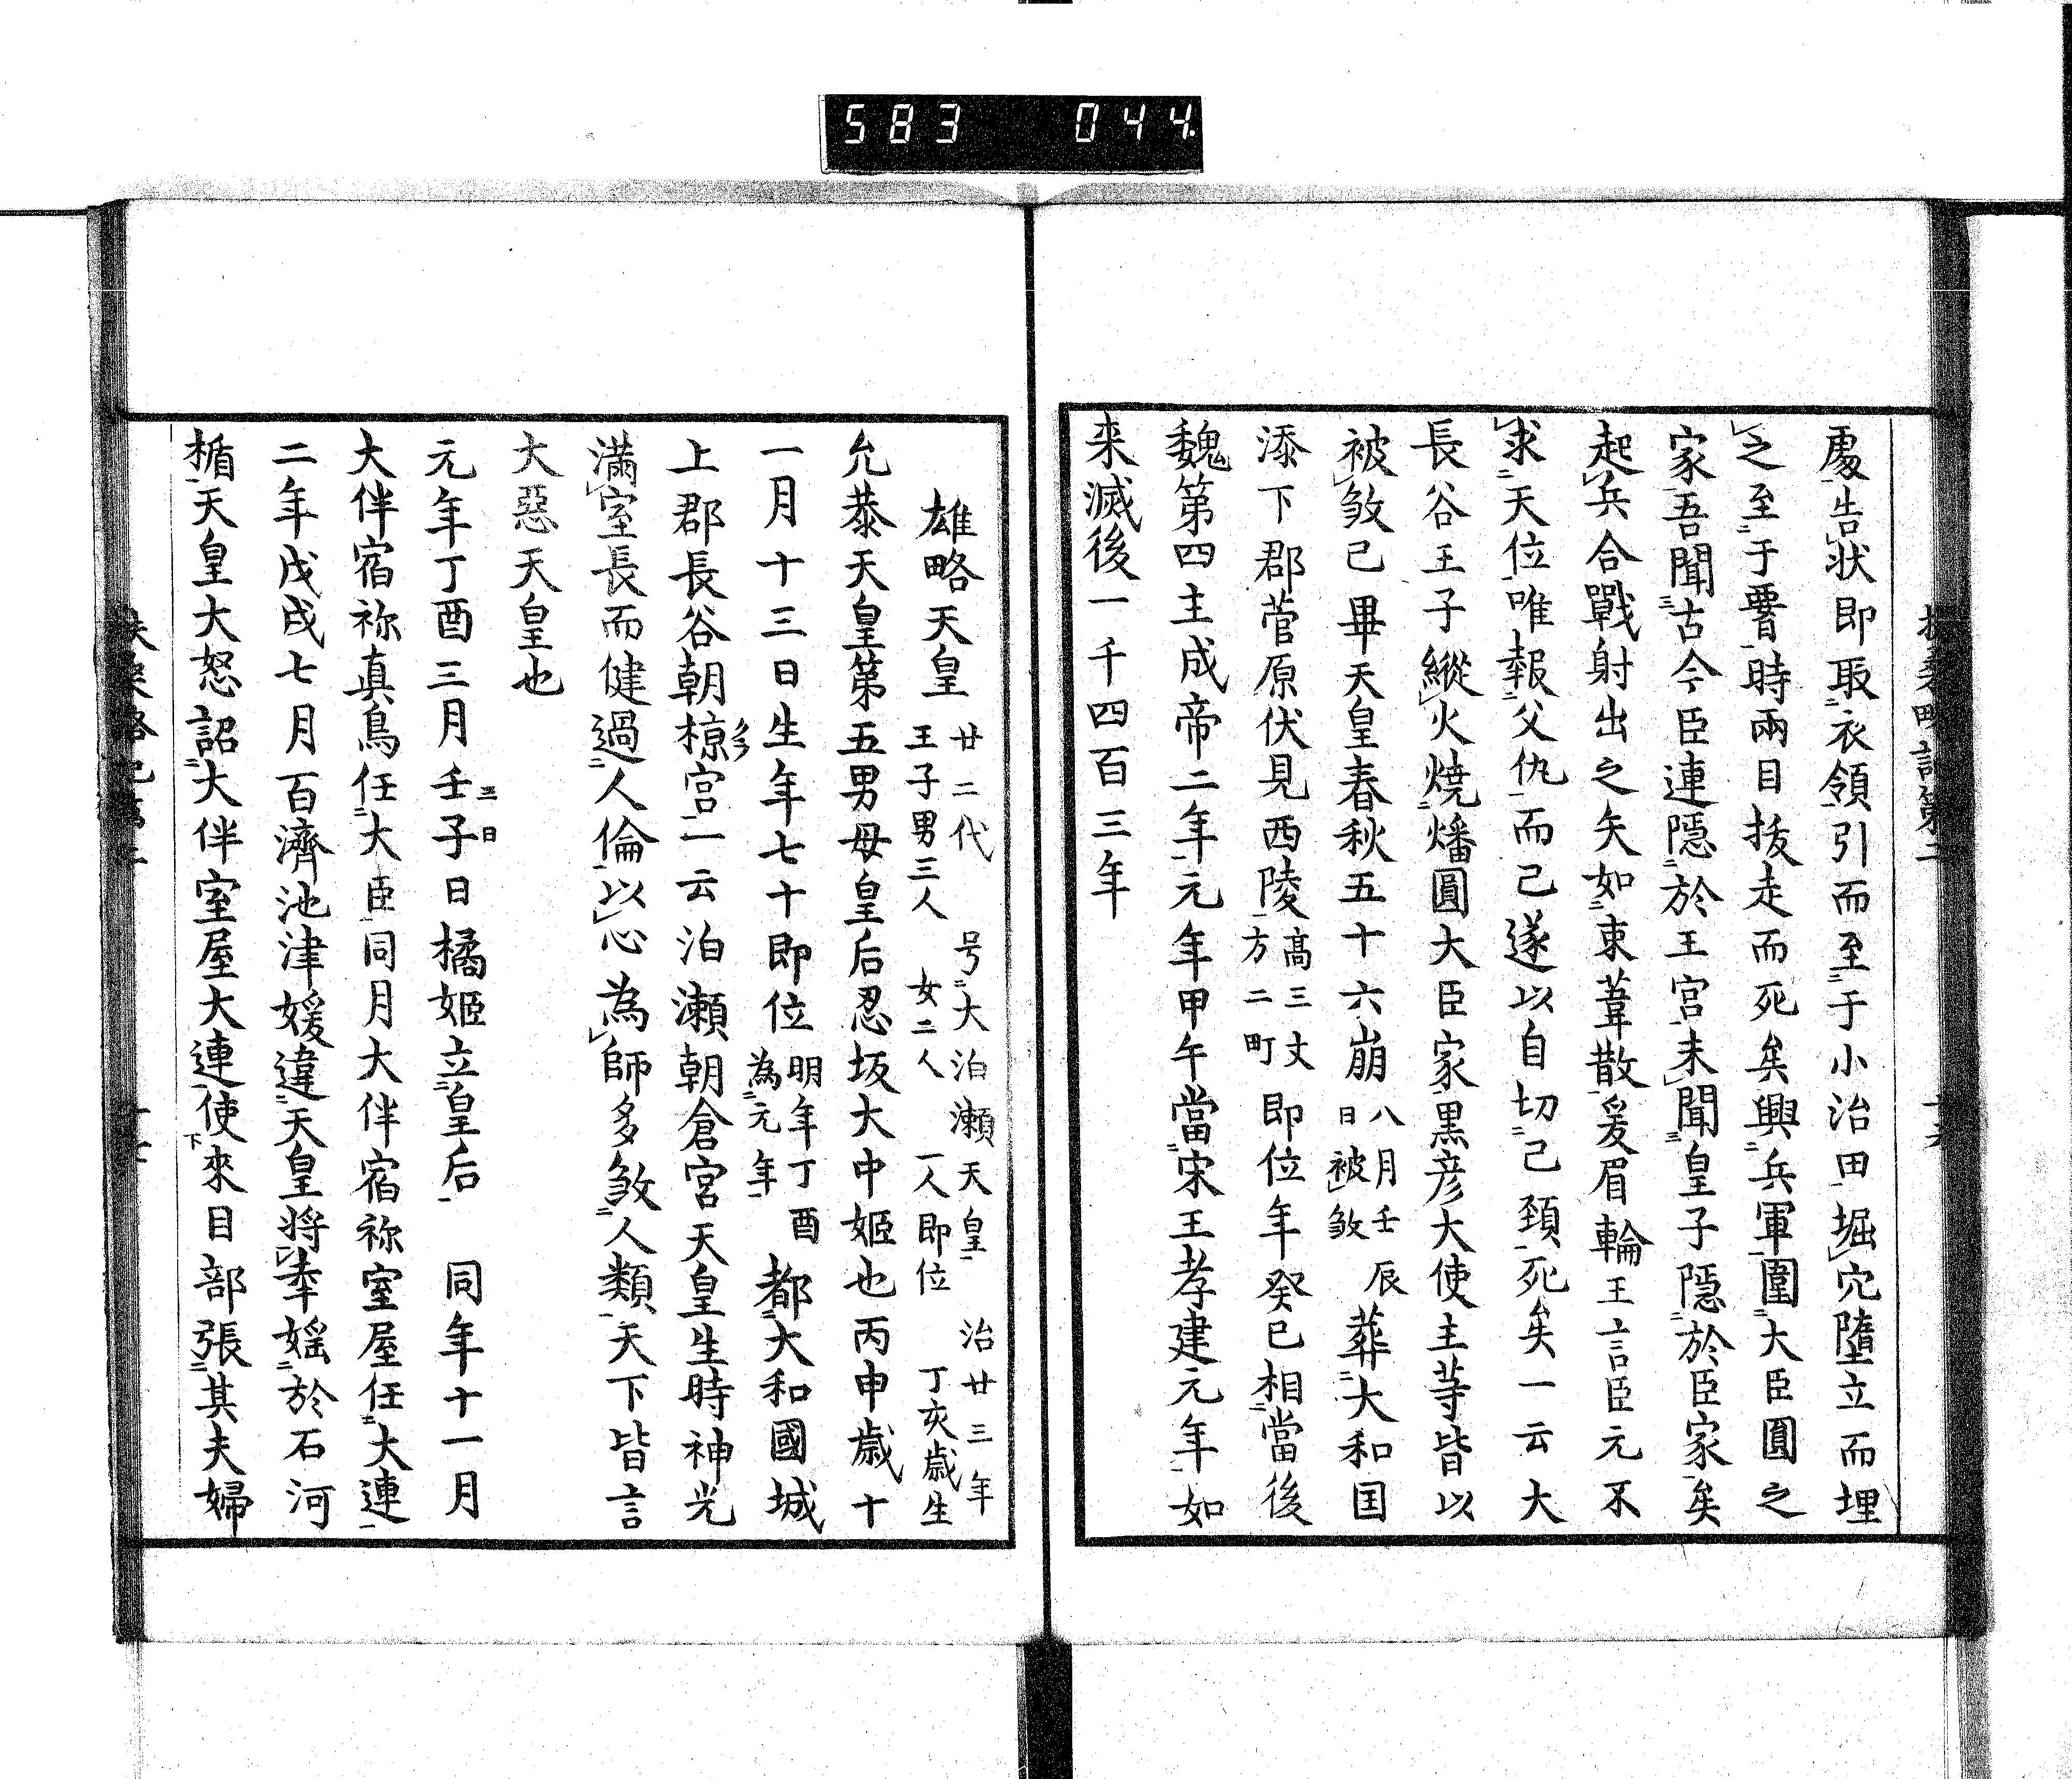 583 044
處告状即取衣領引而至于小治田堀穴墮立而埋
之至于胷時兩目抜走而死矣興兵軍圍大臣圓之
家吾聞古今臣連隠於王宮未聞皇子隠於臣家矣
起兵合戰射出之矢如束葦散爰眉輪王言臣元不
求天位唯報父仇而已遂以自切己頚死矣一云大
長谷王子縱火燒燔圓大臣家黒彦大使主等皆以
被煞已畢天皇春秋五十六崩八月壬辰日被煞葬大和国
添下郡菅原伏見西陵高三丈方二町即位年癸巳相當後
魏第四主成帝二年元年甲午當宋王孝建元年如
来滅後一千四百三年
雄略天皇廿二代 号大泊瀬天皇 治廿三年
王子男三人 女二人 一人即位 丁亥歳生
允恭天皇第五男母皇后忍坂大中姫也丙申歳十
一月十三日生年七十即位明年丁酉為元年都大和國城
上郡長谷朝椋宮一云泊瀬朝倉宮天皇生時神光
滿室長而健過人倫以心為師多煞人類天下皆言
大惡天皇也
元年丁酉三月壬子三日日橘姫立皇后 同年十一月
大伴宿祢真鳥任大臣同月大伴宿祢室屋任大連
二年戊戌七月百濟池津媛違天皇将幸婬於石河
楯天皇大怒詔大伴室屋大連使來目部張其夫婦